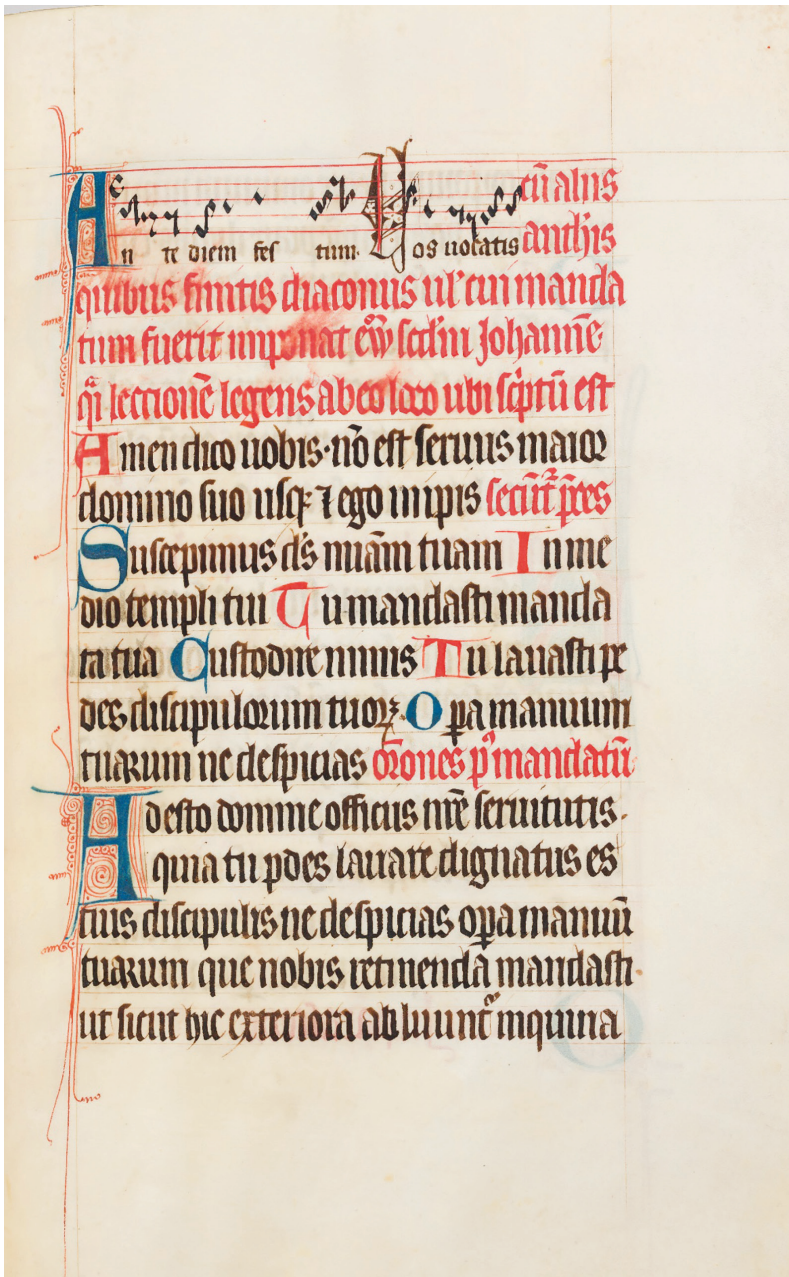 An te diem fes tum. Vos uocatis cū aliis
anthis
quibus finitis diaconus ul' cui manda
tum fuerit imponat ew̄ scd'm Johannē
qi lectionē legens ab eo loco ubi scͥptū est
Amen dico uobis· nō est seruus maior
domino suo usq; ⁊ ego in ipis secūt᷑ p̄ces
Suscepimus ds̄ miām tuam In me
dio templi tui Tu mandasti manda
ta tua Custodire nimis Tu lauasti pe
des discipulorum tuoꝝ. Opa manuum
tuarum ne despicias or̄ones pꝰ mandatū
Adesto domine officiis nr̄e seruitutis.
quia tu pedes lauare dignatus es
tuis discipulis ne despicias opa manuū
tuarum que nobis retinenda mandasti.
ut sicut hic exteriora abluunt᷑ inquina